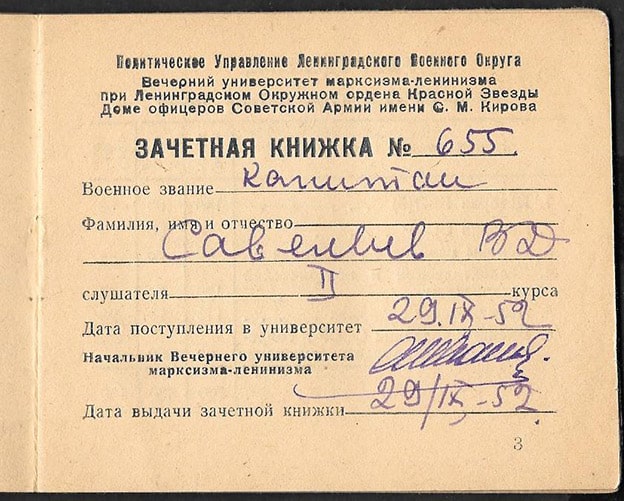 Политическое Управление Ленинградского Военного Округа
Вечерний университет марксизма-ленинизма
при Ленинградском Окружном ордена Красной Звезды
Доме офицеров Советской Армии имени С. М. Кирова
ЗАЧЕТНАЯ КНИЖКА № 655.
Военное звание Капитан
Фамилия, имя и отчество
Савельев В Д
слушателя II курса
Дата поступления в университет 29.IX-52
Начальник Вечернего университета
марксизма-ленинизма
Дата выдачи зачетной книжки 29/IX-52.
3